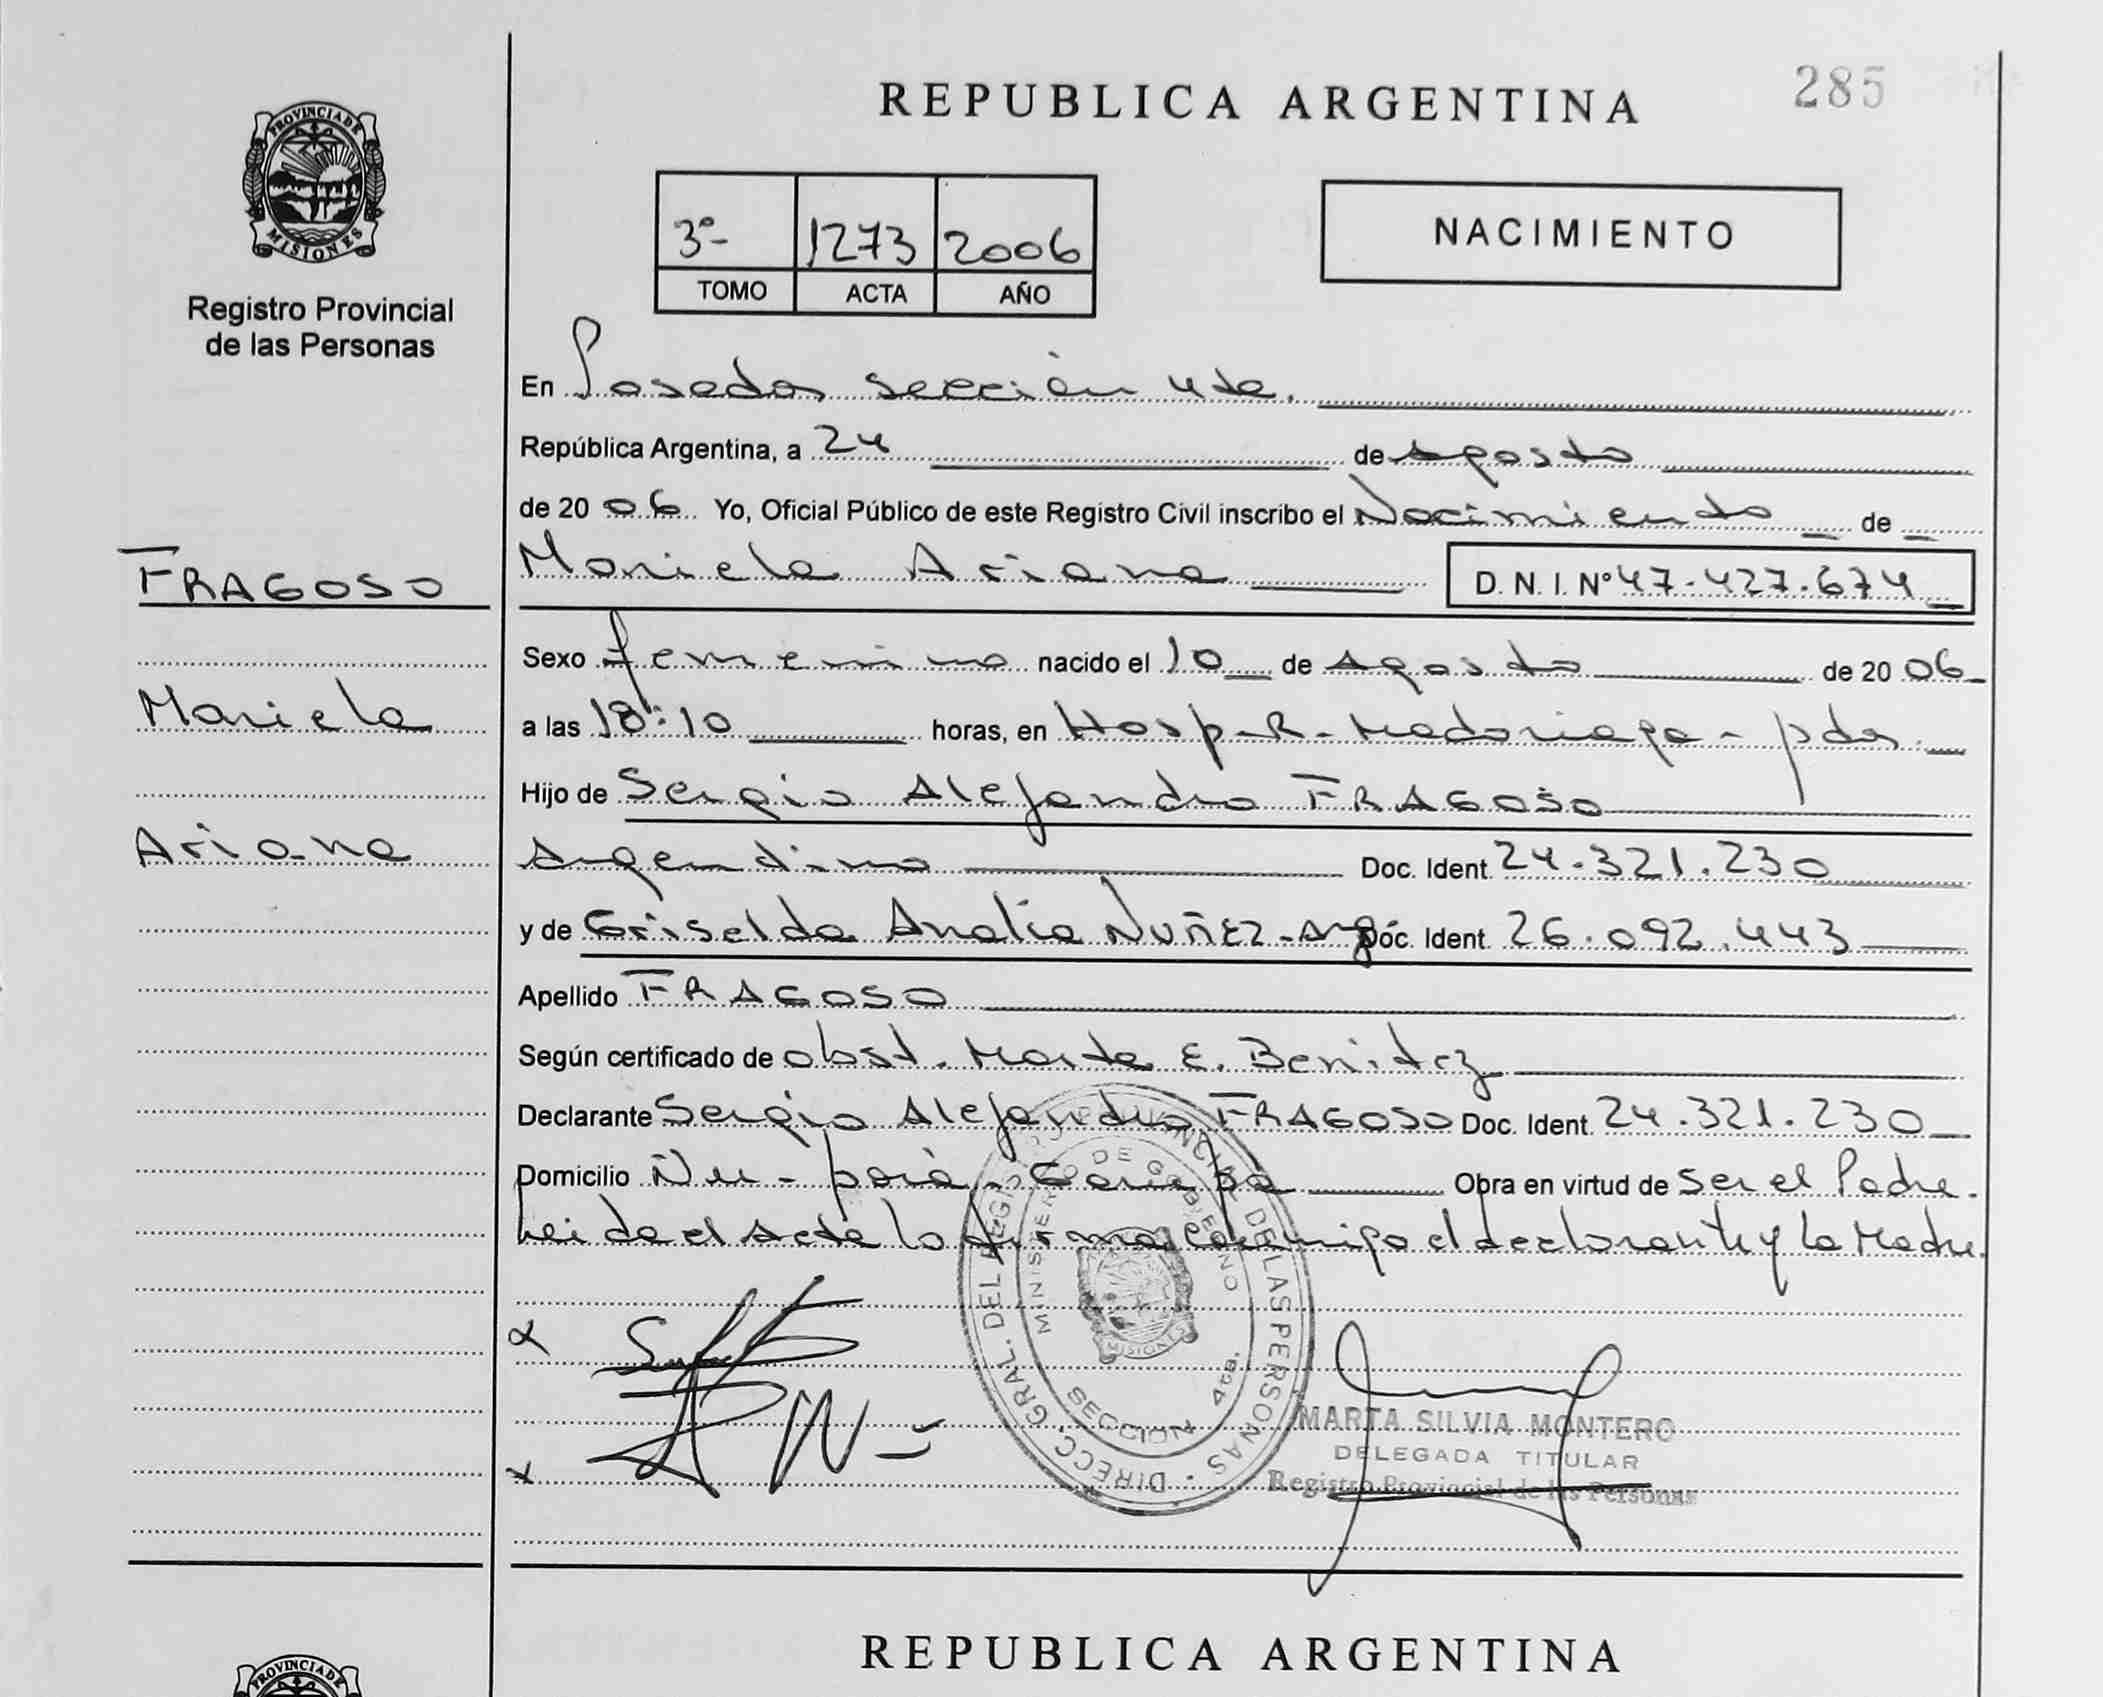 285
REPUBLICA ARGENTINA
PROVINCIA DE
MISIONES
Registro Provincial
de las Personas
3º- 1273 2006
TOMO ACTA AÑO
NACIMIENTO
En Posadas sección 4ta.
República Argentina, a 24 de Agosto
de 2006 Yo, Oficial Público de este Registro Civil inscribo el Nacimiento de
FRAGOSO
Mariela Ariana D. N. I. Nº 47.427.674
Sexo femenino nacido el 10 de Agosto de 2006
Mariela
a las 18:10 horas, en Hosp-R-Madariaga-pdas.
Hijo de Sergio Alejandro FRAGOSO
Ariana
Argentino Doc. Ident. 24.321.230
y de Griselda Analia NUÑEZ-Arg Doc. Ident. 26.092.443
Apellido FRAGOSO
Según certificado de obst. Marta E. Benitez
Declarante Sergio Alejandro FRAGOSO Doc. Ident. 24.321.230
Domicilio Ñu-porá-Garupá Obra en virtud de ser el Padre.
Leida el Acta la firman conmigo el declarante y la Madre.
DIRECC. GRAL. DEL REGISTRO PROVINCIAL DE LAS PERSONAS
MINISTERIO DE GOBIERNO
MISIONES
SECCION 4ta.
MARTA SILVIA MONTERO
DELEGADA TITULAR
Registro Provincial de las Personas
REPUBLICA ARGENTINA
PROVINCIA DE